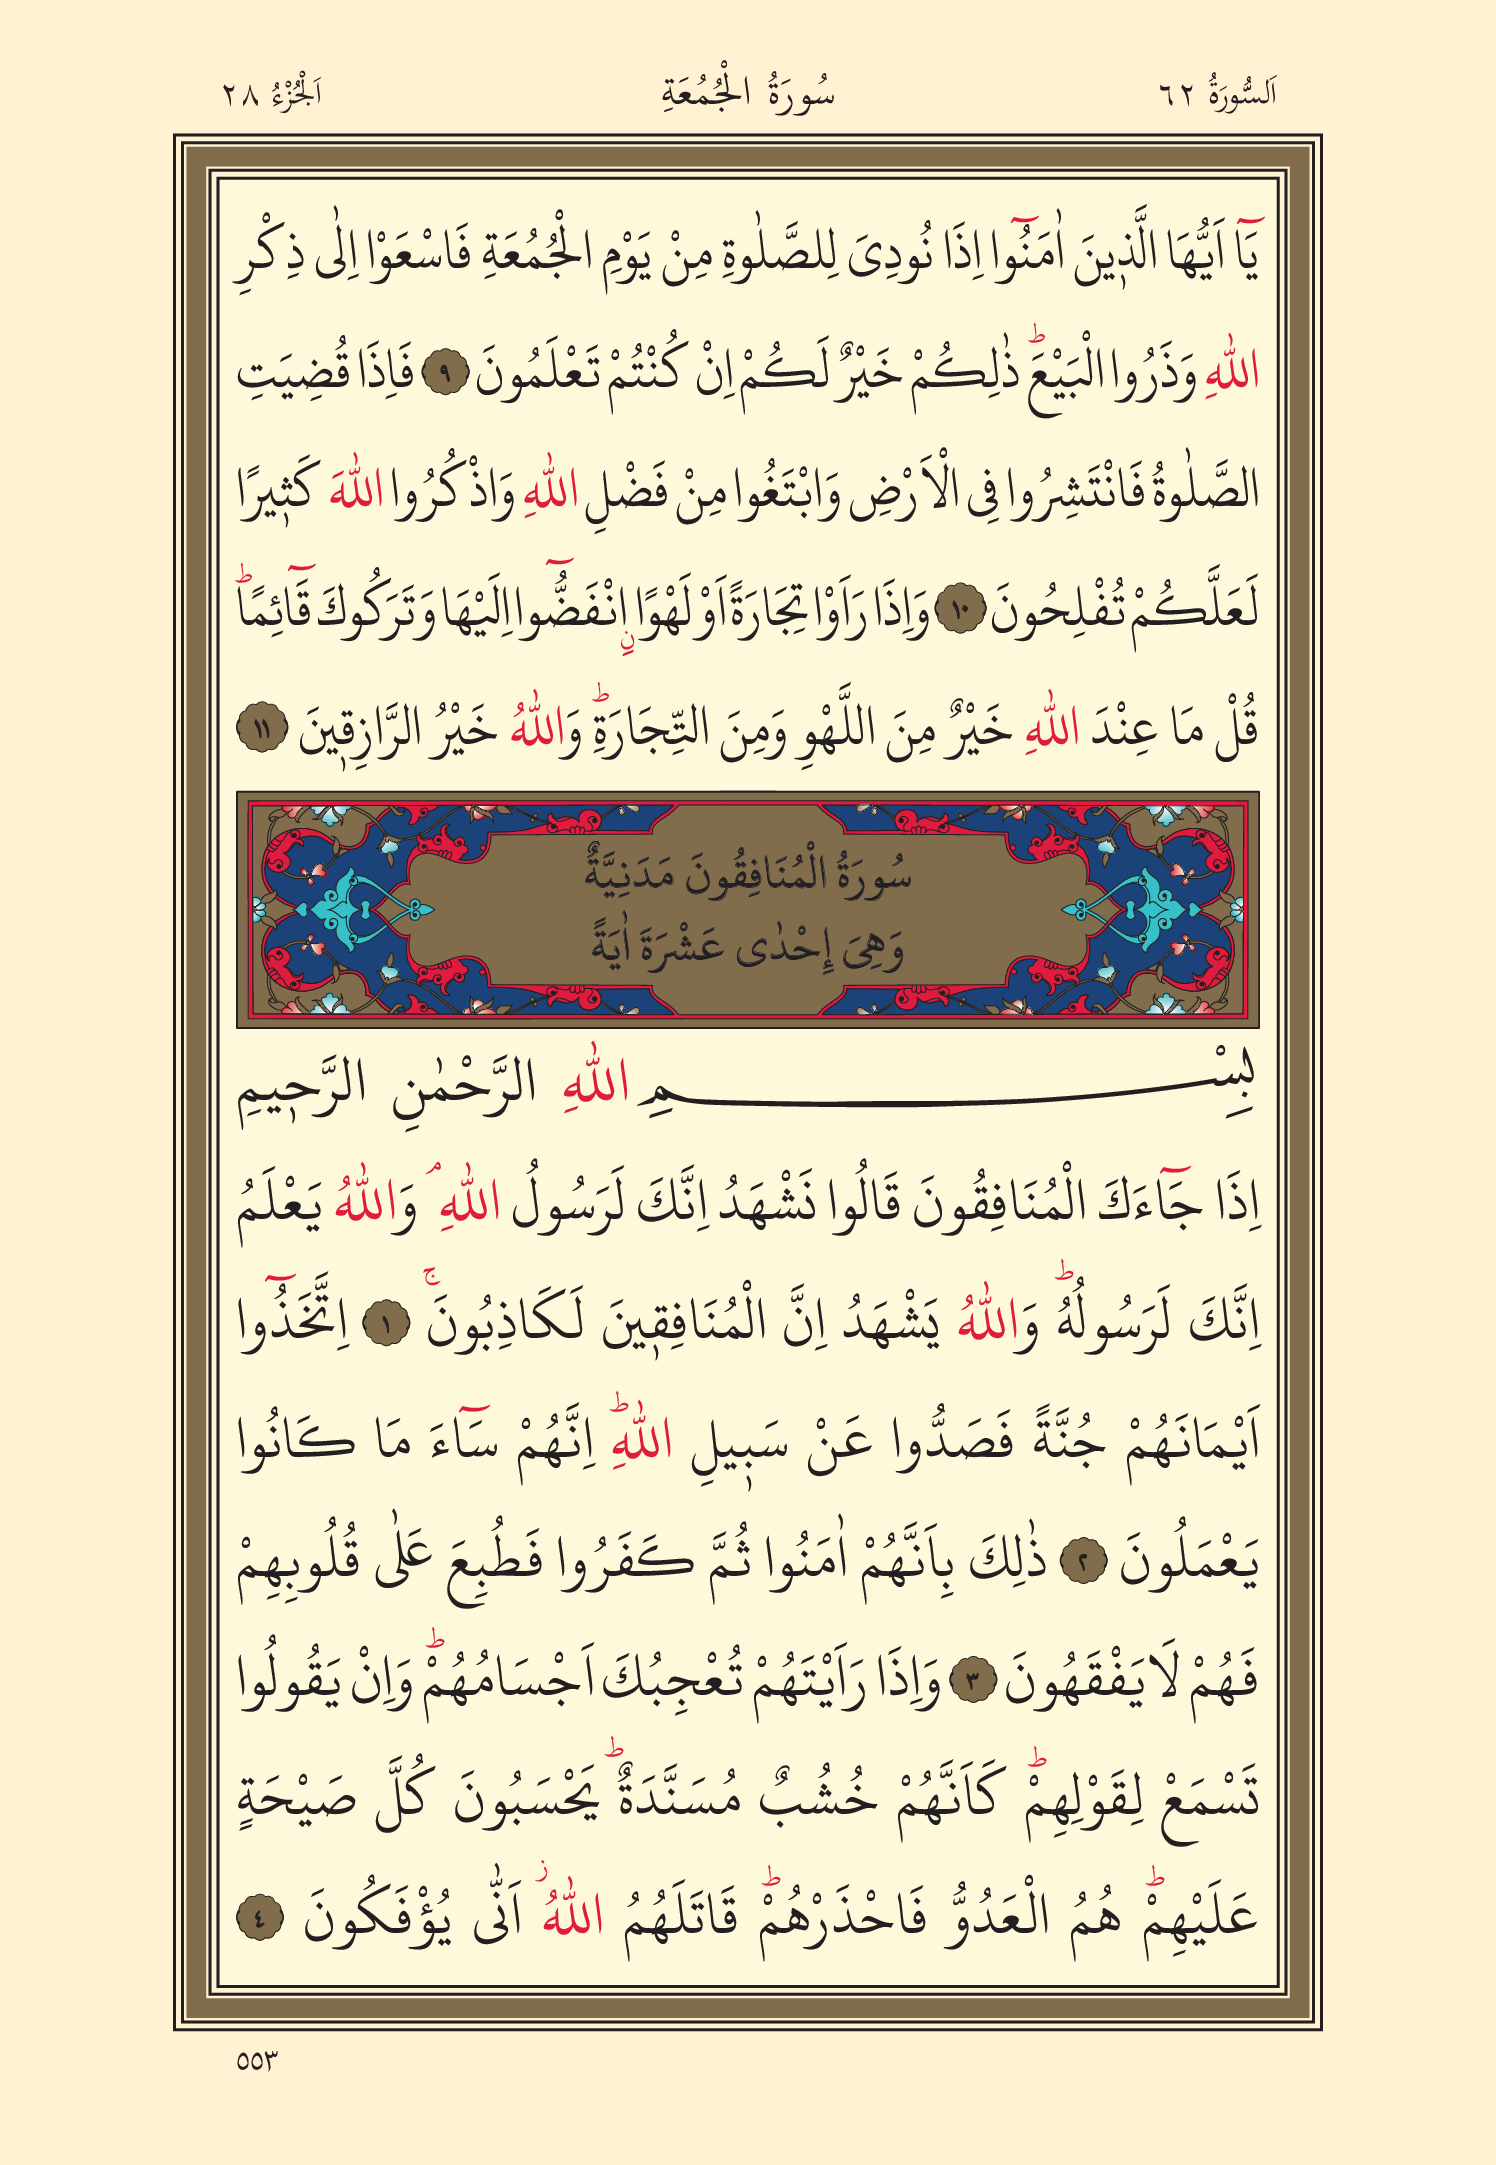 اَلسُّورَةُ ٦٢ سُورَةُ الْجُمُعَةِ اَلْجُزْءُ ٢٨
يَٓا اَيُّهَا الَّذ۪ينَ اٰمَنُٓوا اِذَا نُودِىَ لِلصَّلٰوةِ مِنْ يَوْمِ الْجُمُعَةِ فَاسْعَوْا اِلٰى ذِكْرِ
اللّٰهِ وَذَرُوا الْبَيْعَۜ ذٰلِكُمْ خَيْرٌ لَكُمْ اِنْ كُنْتُمْ تَعْلَمُونَ ٩ فَاِذَا قُضِيَتِ
الصَّلٰوةُ فَانْتَشِرُوا فِى الْاَرْضِ وَابْتَغُوا مِنْ فَضْلِ اللّٰهِ وَاذْكُرُوا اللّٰهَ كَث۪يرًا
لَعَلَّكُمْ تُفْلِحُونَ ١٠ وَاِذَا رَاَوْا تِجَارَةً اَوْ لَهْوًاۨ انْفَضُّٓوا اِلَيْهَا وَتَرَكُوكَ قَٓائِمًاۜ
قُلْ مَا عِنْدَ اللّٰهِ خَيْرٌ مِنَ اللَّهْوِ وَمِنَ التِّجَارَةِۜ وَاللّٰهُ خَيْرُ الرَّازِق۪ينَ ١١
سُورَةُ الْمُنَافِقُونَ مَدَنِيَّةٌ
وَهِىَ إِحْدٰى عَشْرَةَ اٰيَةً
بِسْمِ اللّٰهِ الرَّحْمٰنِ الرَّح۪يمِ
اِذَا جَٓاءَكَ الْمُنَافِقُونَ قَالُوا نَشْهَدُ اِنَّكَ لَرَسُولُ اللّٰهِۢ وَاللّٰهُ يَعْلَمُ
اِنَّكَ لَرَسُولُهُۜ وَاللّٰهُ يَشْهَدُ اِنَّ الْمُنَافِق۪ينَ لَكَاذِبُونَۚ ١ اِتَّخَذُٓوا
اَيْمَانَهُمْ جُنَّةً فَصَدُّوا عَنْ سَب۪يلِ اللّٰهِۜ اِنَّهُمْ سَٓاءَ مَا كَانُوا
يَعْمَلُونَ ٢ ذٰلِكَ بِاَنَّهُمْ اٰمَنُوا ثُمَّ كَفَرُوا فَطُبِعَ عَلٰى قُلُوبِهِمْ
فَهُمْ لَا يَفْقَهُونَ ٣ وَاِذَا رَاَيْتَهُمْ تُعْجِبُكَ اَجْسَامُهُمْۜ وَاِنْ يَقُولُوا
تَسْمَعْ لِقَوْلِهِمْۜ كَاَنَّهُمْ خُشُبٌ مُسَنَّدَةٌۜ يَحْسَبُونَ كُلَّ صَيْحَةٍ
عَلَيْهِمْۜ هُمُ الْعَدُوُّ فَاحْذَرْهُمْۜ قَاتَلَهُمُ اللّٰهُۘ اَنّٰى يُؤْفَكُونَ ٤
٥٥٣